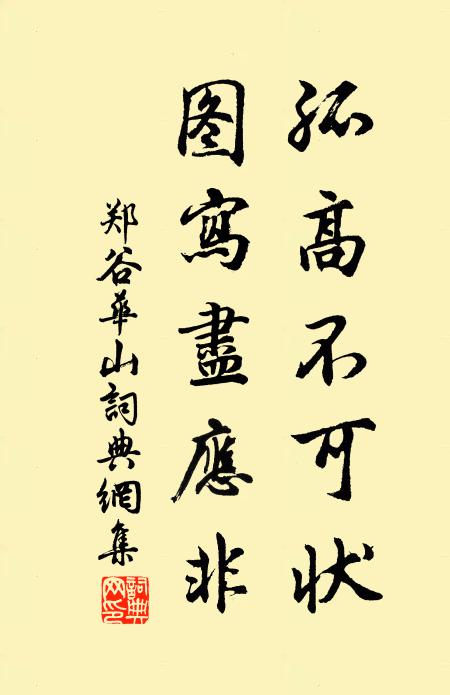 孤高不可状
图寫盡應非
郑谷華山詞典網集
詞典网印